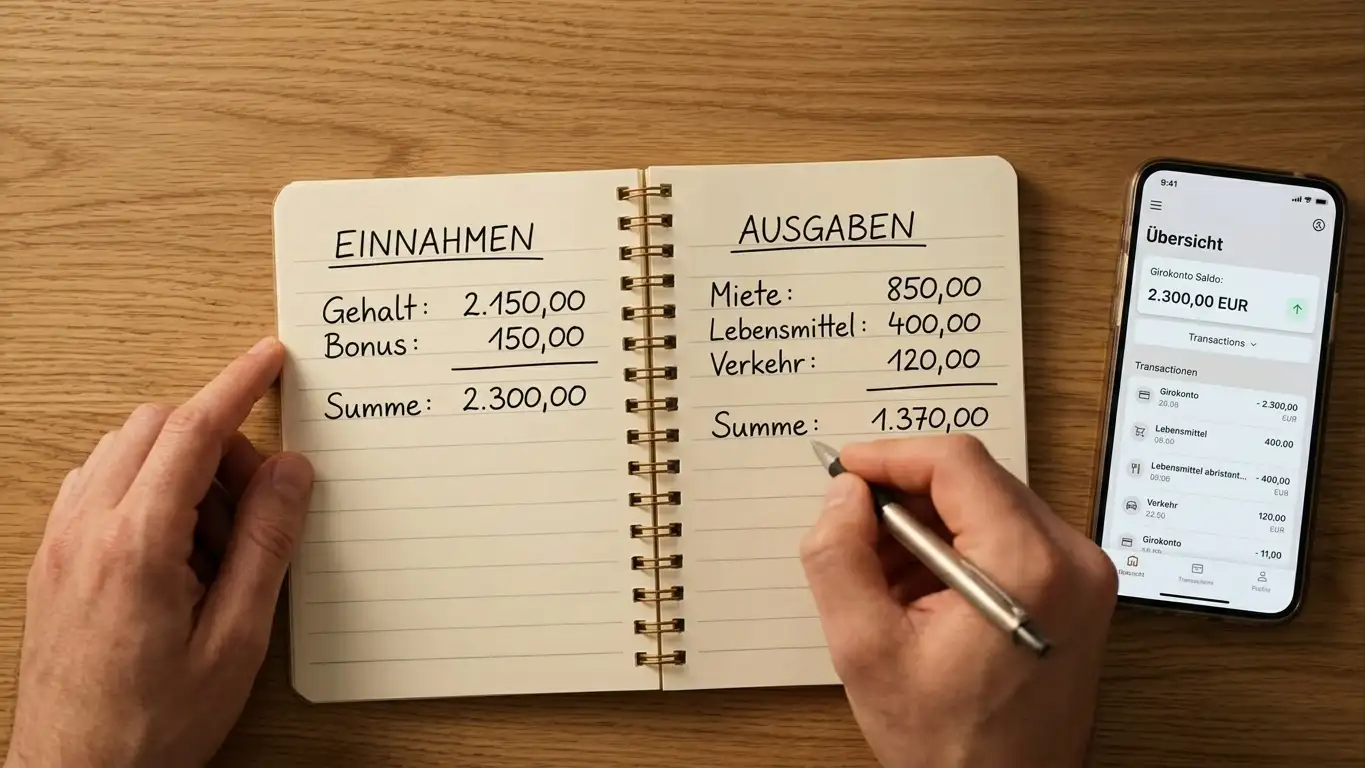 EINNAHMEN
Gehalt: 2.150,00
Bonus: 150,00
Summe: 2.300,00
AUSGABEN
Miete: 850,00
Lebensmittel: 400,00
Verkehr: 120,00
Summe: 1.370,00
9:41
Übersicht
Girokonto Saldo:
2.300,00 EUR
Transactions
Transactionen
Girokonto - 2.300,00
26.08 EUR
Lebensmittel 400,00
08.00
Lebensmittel abristant... - 400,00
09:06 EUR
Verkehr 120,00
22.50 EUR
Girokonto - 11,00
Transactions